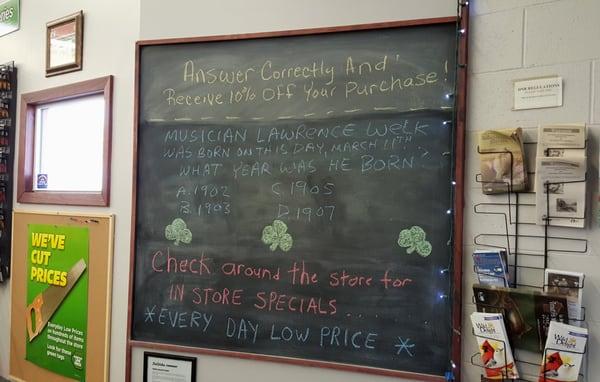 Answer Correctly And
Receive 10% Off Your Purchase!
MUSICIAN LAWRENCE WELK
WAS BORN ON THIS DAY, MARCH 11TH
WHAT YEAR WAS HE BORN?
A. 1902 C. 1905
B. 1903 D. 1907
Check around the store for
IN STORE SPECIALS....
*EVERY DAY LOW PRICE *
WE'VE
CUT
PRICES
Everyday Low Prices
on hundreds of items
throughout the store.
Look for these
green tags.
DNR REGULATIONS